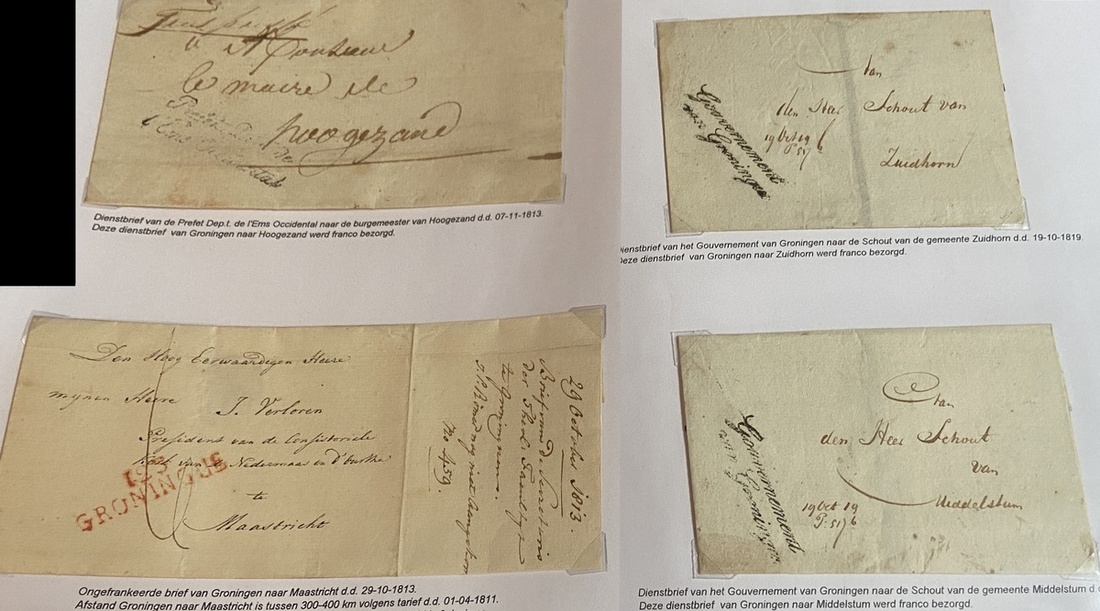 a Monsieur
le maire de
hoogezand
Dienstbrief van de Prefet Dep.t. de l'Ems Occidental naar de burgemeester van Hoogezand d.d. 07-11-1813.
Deze dienstbrief van Groningen naar Hoogezand werd franco bezorgd.
Aan
den Heer Schout van
Zuidhorn
19 Oct 19
Gouvernement
van Groningen
Dienstbrief van het Gouvernement van Groningen naar de Schout van de gemeente Zuidhorn d.d. 19-10-1819.
Deze dienstbrief van Groningen naar Zuidhorn werd franco bezorgd.
Den Hoog Eerwaardigen Heere
mynen Heere
J. Verloren
President van de Consistoriele
Kerk van Nedermaas en d'Ourthe
te
Maastricht
GRONINGUE
29 October 1813
te Groningen.
No 459.
Ongefrankeerde brief van Groningen naar Maastricht d.d. 29-10-1813.
Afstand Groningen naar Maastricht is tussen 300-400 km volgens tarief d.d. 01-04-1811.
Aan
den Heer Schout
van
Middelstum
19 Oct 19
Gouvernement
van Groningen
Dienstbrief van het Gouvernement van Groningen naar de Schout van de gemeente Middelstum d.
Deze dienstbrief van Groningen naar Middelstum werd franco bezorgd.